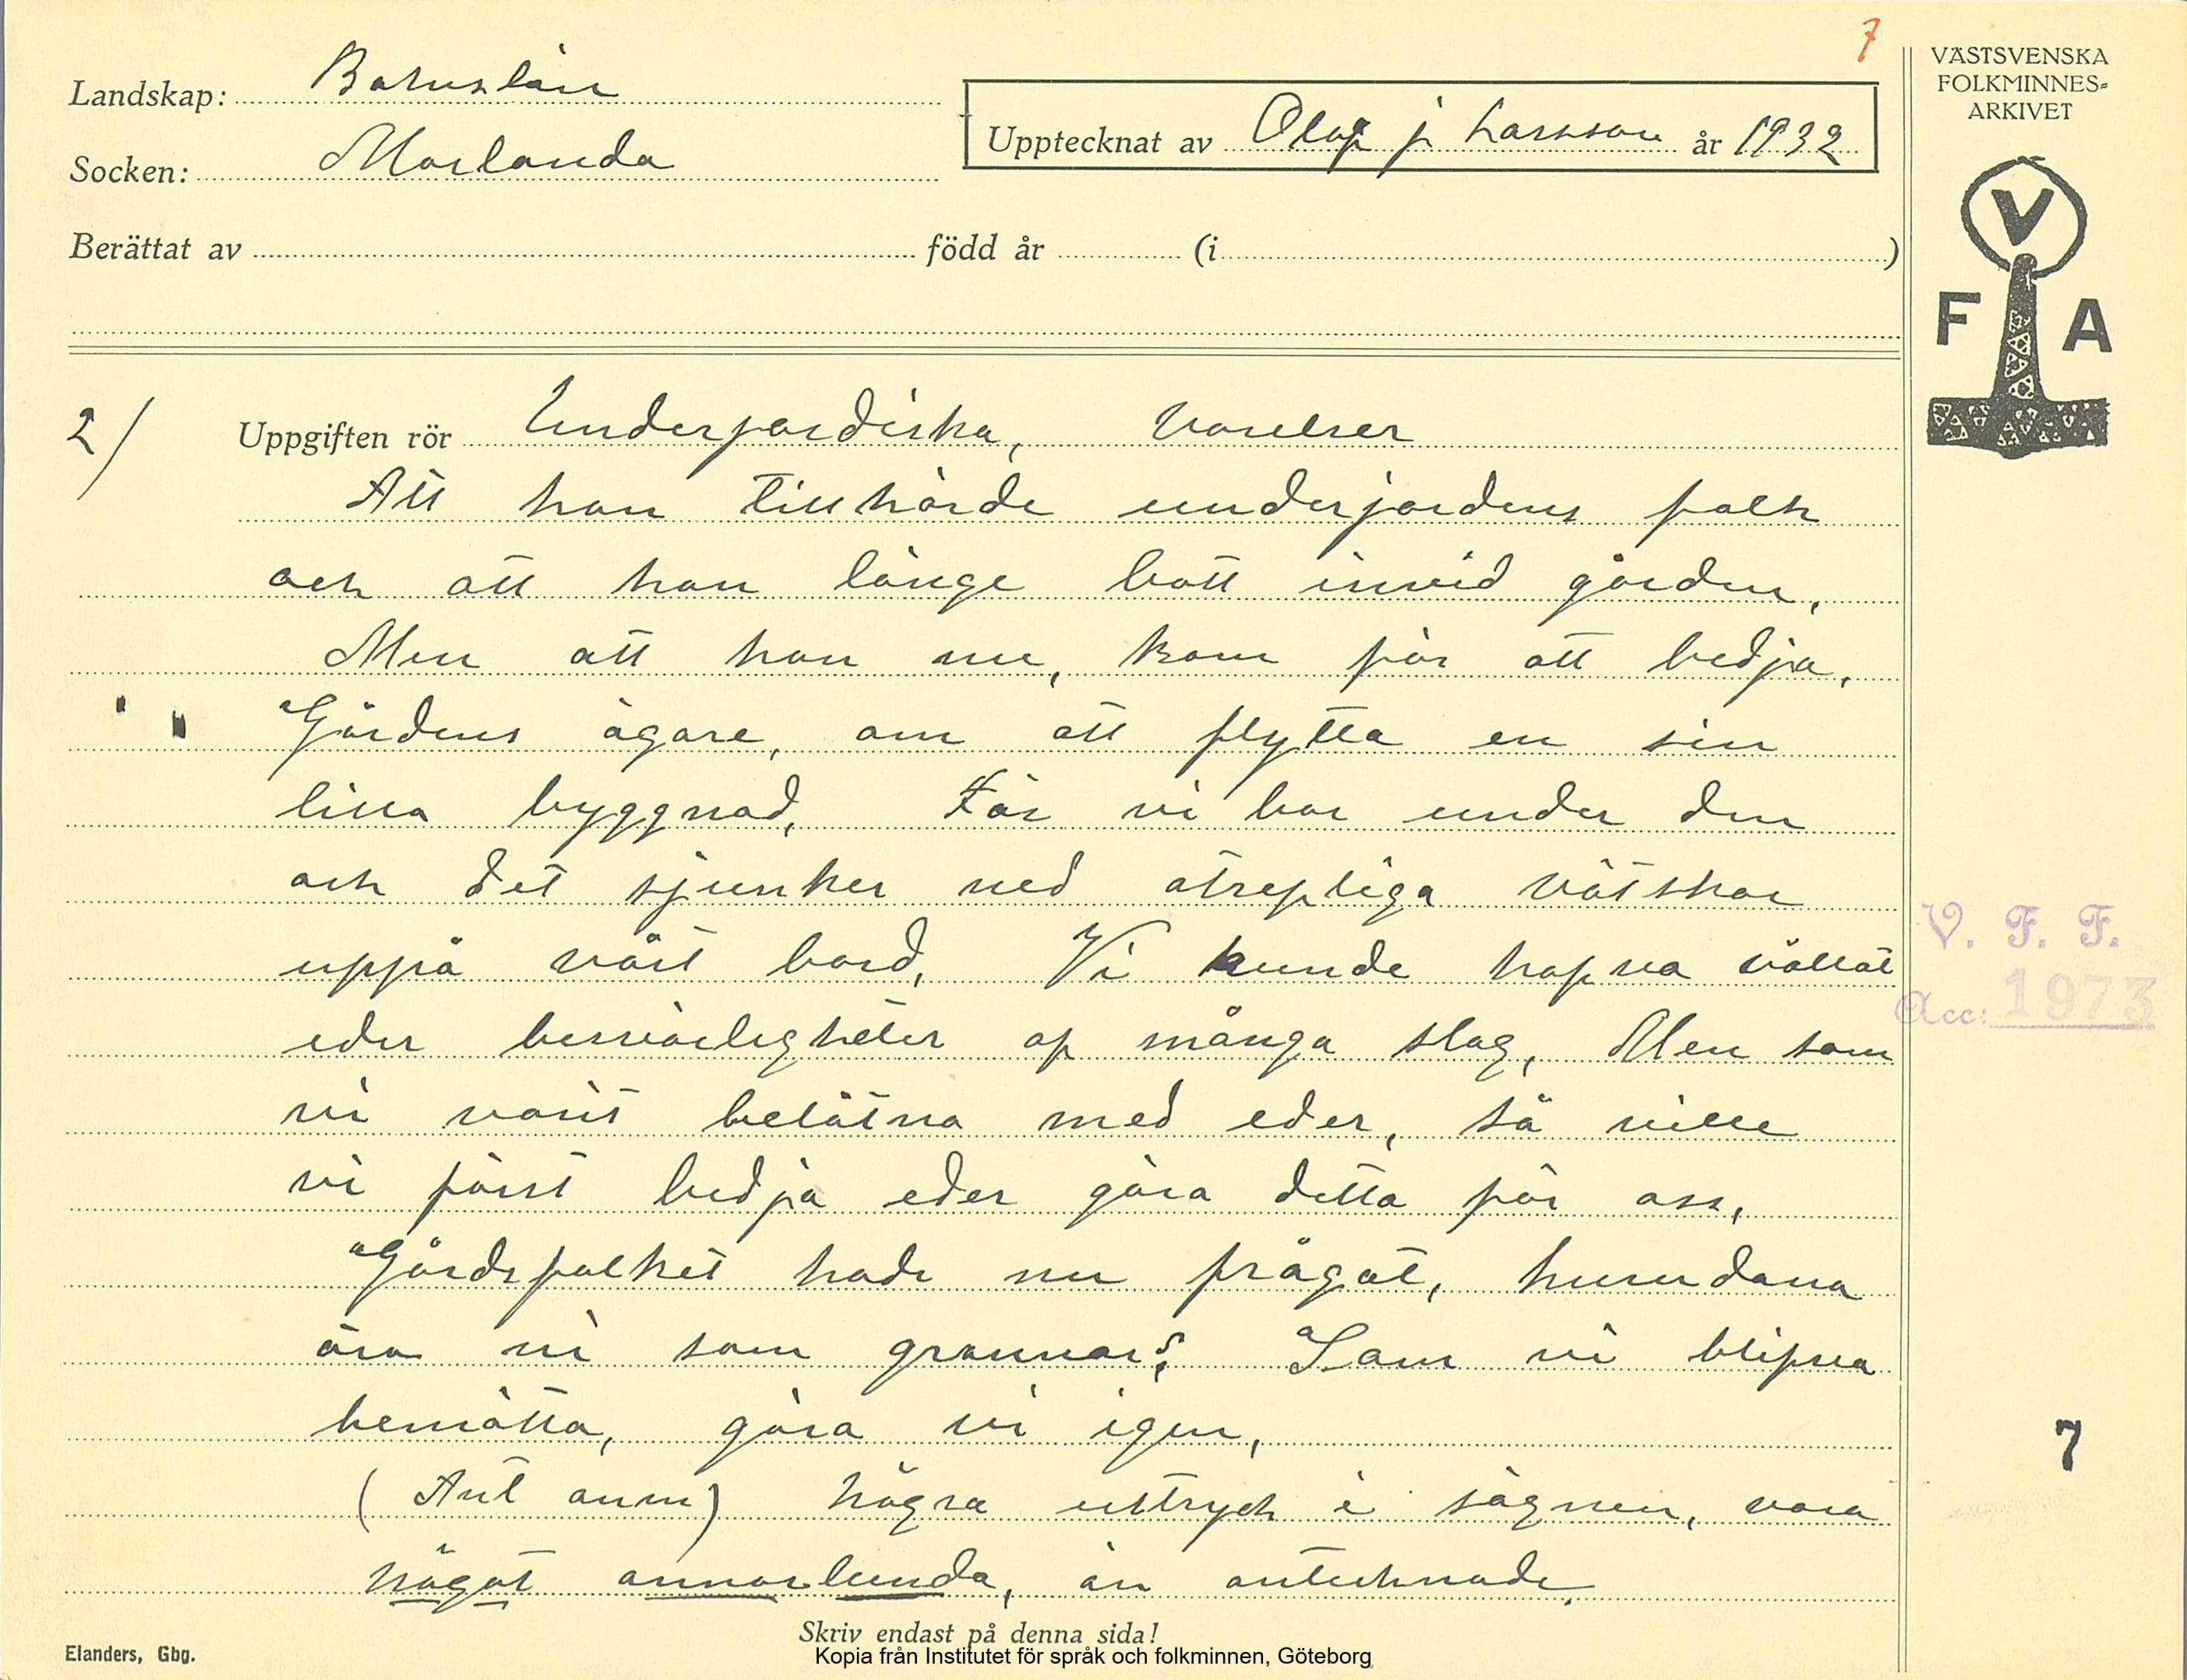 7
VÄSTSVENSKA
FOLKMINNES-
ARKIVET
Landskap: Bohuslän
Socken: Morlanda
Upptecknat av Olof j Larsson år 1932
Berättat av född år (i )
V
F A
2/ Uppgiften rör Underjordiska, Varelser
Att han tillhörde underjordens folk
och att han länge bott invid gården,
Men att han nu, kom för att bedja,
Gårdens ägare, om att flytta en sin
lilla byggnad, För vi bor under den
och det sjunker ned otrefliga vätskor
uppå vårt bord, Vi kunde hafva vållat
eder besvärligheter af många slag, Men som
vi varit belåtna med eder, så ville
vi först bedja eder göra detta för oss,
Gårdsfolket hade nu frågat, hurudana
äro ni som grannar? Som vi blifva
bemötta, göra vi igen,
(Ant anm) några uttryck i sägnen, vara
något annorlunda, än antecknade.
V. F. F.
Acc: 1973
7
Skriv endast på denna sida!
Elanders, Gbg.
Kopia från Institutet för språk och folkminnen, Göteborg